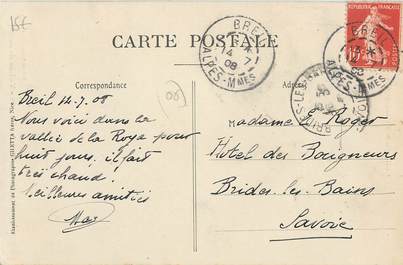 15€
CARTE POSTALE
BREIL
14-7
08
ALPES-MMES
REPUBLIQUE FRANÇAISE
10
BREIL
08
ALPES-MMES
BRIDES-LES-BAINS
Correspondance
Adresse
06
Breil 12.7.08
Nous voici dans la
vallée de la Roya pour
huit jours, il fait
très chaud.
Meilleures amitiés
Max
Madame E Roger
Hotel des Baigneurs
Brides les Bains
Savoie